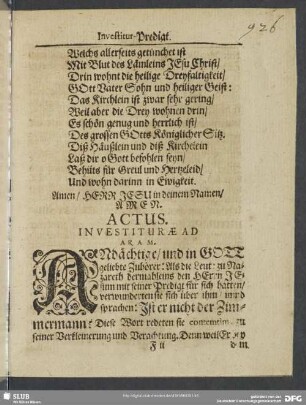 Investitur-Predigt.
926
Welchs allerseits getünchet ist
Mit Blut des Lämleins JEsu Christ/
Drin wohnt die heilige Dreyfaltigkeit/
GOtt Vater Sohn und heiliger Geist:
Das Kirchlein ist zwar sehr gering/
Weil aber die Drey wohnen drin/
Es schön genug und herrlich ist/
Des grossen GOtts Königlicher Sitz.
Diß Häußlein und diß Kirchelein
Laß dir o Gott befohlen seyn/
Behüts für Greul und Hertzeleid/
Und wohn darinn in Ewigkeit.
Amen/ HERR JESU in deinem Namen/
AMEN.
ACTUS.
INVESTITURÆ AD
ARAM.
ANdächtige/ und in GOTT
geliebte Zuhörer: Als die Leut zu Na-
zareth dermahleins den HErrn JEs
sum mit seiner Predigt für sich hatten/
verwunderten sie sich über ihm und
sprachen: Ist er nicht der Zim-
mermann? Diese Wort redeten sie
seiner Verkleinerung und Verachtung. Denn weil Er
F ij
SLUB
DFG